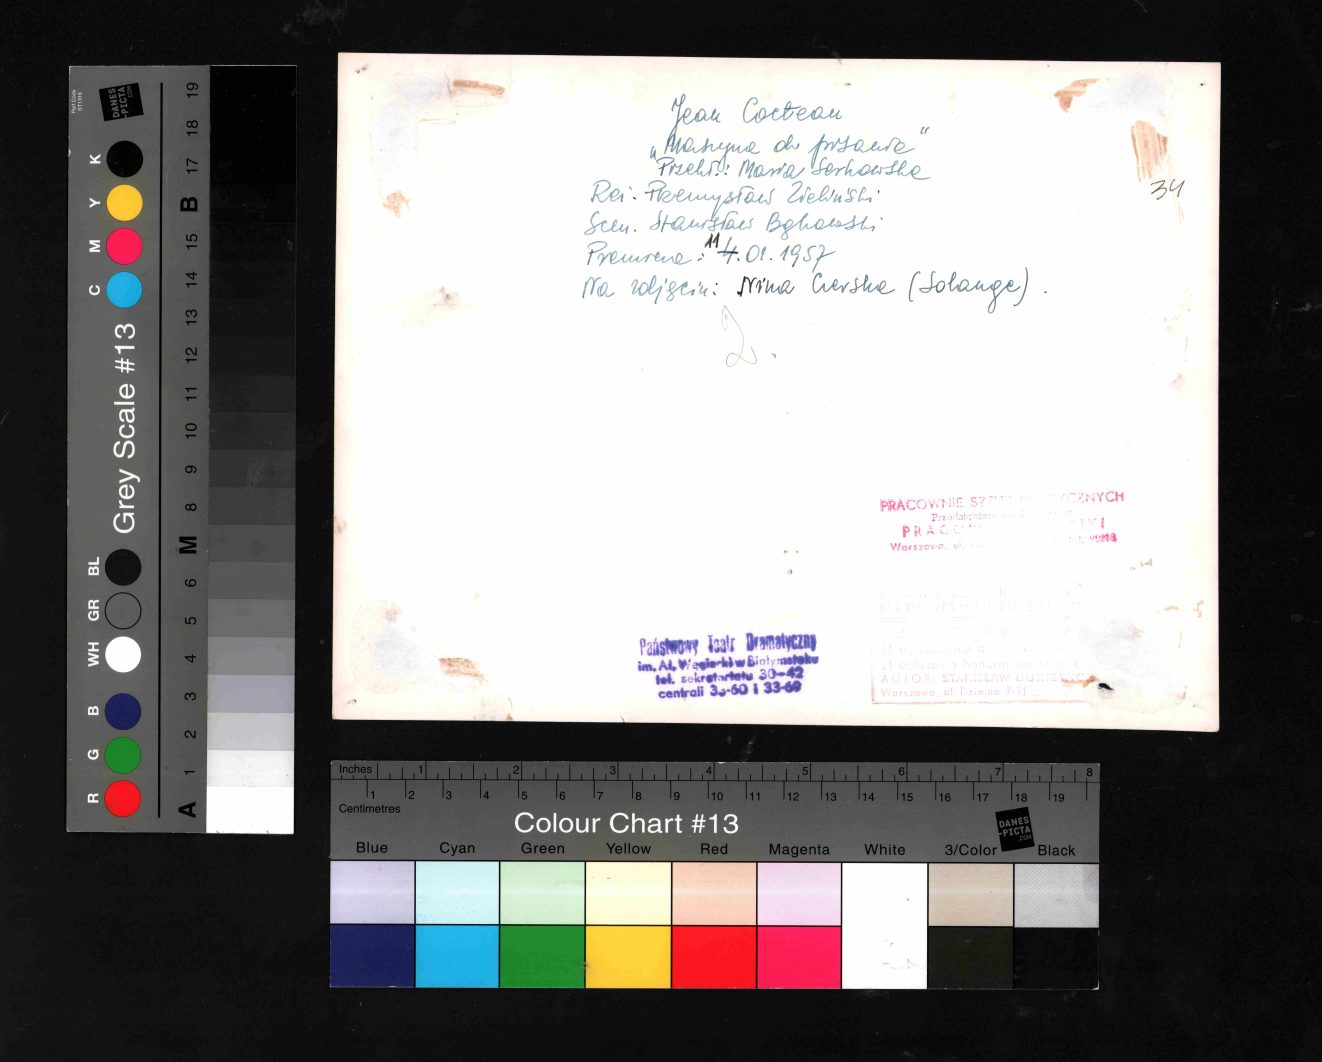 Jean Cocteau
„Maszyna do pisania"
Przekł.: Maria Serkowska
Reż. Przemysław Zieliński
Scen. Stanisław Bąkowski
Premiera: 11 4.01.1957
Na zdjęciu: Nina Czerska (Solange).
2.
34
PRACOWNIE
PRAC
Warszawa, ul.
Państwowy Teatr Dramatyczny
im. Al. Węgierki w Białymstoku
tel. sekretariatu 30-42
centrali 33-60 i 33-69
LES DROITS D'AUTEURS
1)
2) opłacenia honorarium
AUTOR: STANISŁAW
Warszawa, ul.
Part Code
ST1316
DANES
-PICTA
.COM
Grey Scale #13
R G B WH GR BL C M Y K
A 1 2 3 4 5 6 M 8 9 10 11 12 13 14 15 B 17 18 19
Inches 1 2 3 4 5 6 7 8
1 2 3 4 5 6 7 8 9 10 11 12 13 14 15 16 17 18 19
Centimetres
Colour Chart #13
DANES
-PICTA
.COM
Blue Cyan Green Yellow Red Magenta White 3/Color Black